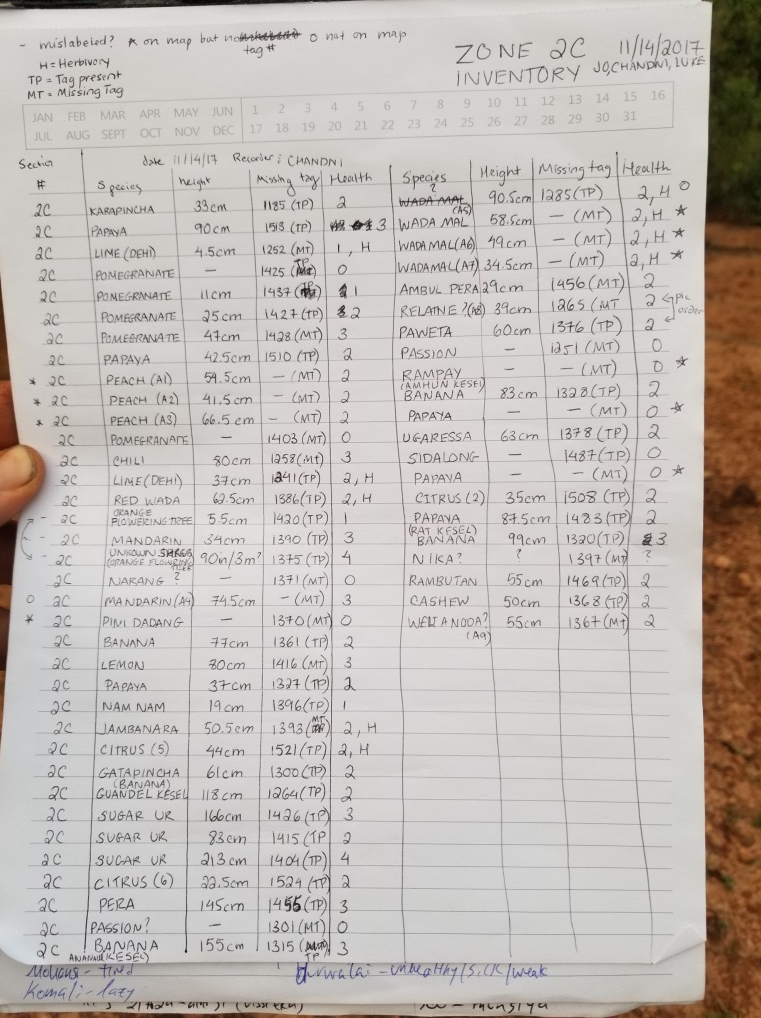 - mislabeled? * on map but no tag # O not on map
H = Herbivory
TP = Tag present
MT = Missing Tag
ZONE 2C 11/14/2017
INVENTORY JO, CHANDNI, LUKE
JAN FEB MAR APR MAY JUN 1 2 3 4 5 6 7 8 9 10 11 12 13 14 15 16
JUL AUG SEPT OCT NOV DEC 17 18 19 20 21 22 23 24 25 26 27 28 29 30 31
date 11/14/17 Recorder: CHANDNI
Section # Species height Missing tag Health Species Height Missing tag Health
2C KARAPINCHA 33cm 1185 (TP) 2 WADA MAL ? 90.5cm 1285 (TP) 2, H O
2C PAPAYA 90cm 1513 (TP) 3 WADA MAL (A5) 58.5cm - (MT) 2, H *
2C LIME (DEHI) 4.5cm 1252 (MT) 1, H WADAMAL (A6) 49cm - (MT) 2, H *
2C POMEGRANATE - 1425 (TP) 0 WADAMAL (A7) 34.5cm - (MT) 2, H *
2C POMEGRANATE 11cm 1437 (TP) 1 AMBUL PERA 29cm 1456 (MT) 2
2C POMEGRANATE 25cm 1427 (TP) 2 RELATNE? (A8) 39cm 1265 (MT 2 pic order
2C POMEGRANATE 47cm 1428 (MT) 3 PAWETA 60cm 1376 (TP) 2
2C PAPAYA 42.5cm 1510 (TP) 2 PASSION - 1251 (MT) 0
* 2C PEACH (A1) 54.5cm - (MT) 2 RAMPAY - - (MT) 0 *
* 2C PEACH (A2) 41.5cm - (MT) 2 (AMHUN KESEL) BANANA 83cm 1328 (TP) 2
* 2C PEACH (A3) 66.5cm - (MT) 2 PAPAYA - - (MT) 0 *
2C POMEGRANATE - 1403 (MT) 0 UGARESSA 63cm 1378 (TP) 2
2C CHILI 80cm 1258 (MT) 3 SIDALONG - 1487 (TP) 0
2C LIME (DEHI) 37cm 1341 (TP) 2, H PAPAYA - - (MT) 0 *
2C RED WADA 62.5cm 1386 (TP) 2, H CITRUS (2) 35cm 1508 (TP) 2
- 2C ORANGE FLOWERING TREE 5.5cm 1420 (TP) 1 PAPAYA 87.5cm 1483 (TP) 2
2C MANDARIN 34cm 1390 (TP) 3 (RAT KESEL) BANANA 99cm 1320 (TP) 3
- 2C UNKOWN (ORANGE FLOWRING TREE 90in/3m? 1375 (TP) 4 NIKA? ? 1397 (MT) ?
2C NARANG ? - 1371 (MT) 0 RAMBUTAN 55cm 1469 (TP) 2
O 2C MANDARIN (A4) 74.5cm - (MT) 3 CASHEW 50cm 1368 (TP) 2
* 2C PINI DADANG - 1370 (MT) 0 WELI ANODA? (A9) 55cm 1367 (MT) 2
2C BANANA 77cm 1361 (TP) 2
2C LEMON 80cm 1416 (MT) 3
2C PAPAYA 37cm 1327 (TP) 2
2C NAM NAM 19cm 1396 (TP) 1
2C JAMBANARA 50.5cm 1393 (MT) 2, H
2C CITRUS (5) 44cm 1521 (TP) 2, H
2C GATAPINCHA 61cm 1300 (TP) 2
2C (BANANA) GUANDEL KESEL 118cm 1264 (TP) 2
2C SUGAR UR 166cm 1426 (TP) 3
2C SUGAR UR 83cm 1415 (TP 2
2C SUGAR UR 213cm 1404 (TP) 4
2C CITRUS (6) 22.5cm 1524 (TP) 2
2C PERA 145cm 1455 (TP) 3
2C PASSION? - 1301 (MT) 0
2C BANANA 155cm 1315 (TP) 3
KESEL)
- unhealthy/sick/weak
Komali - lazy